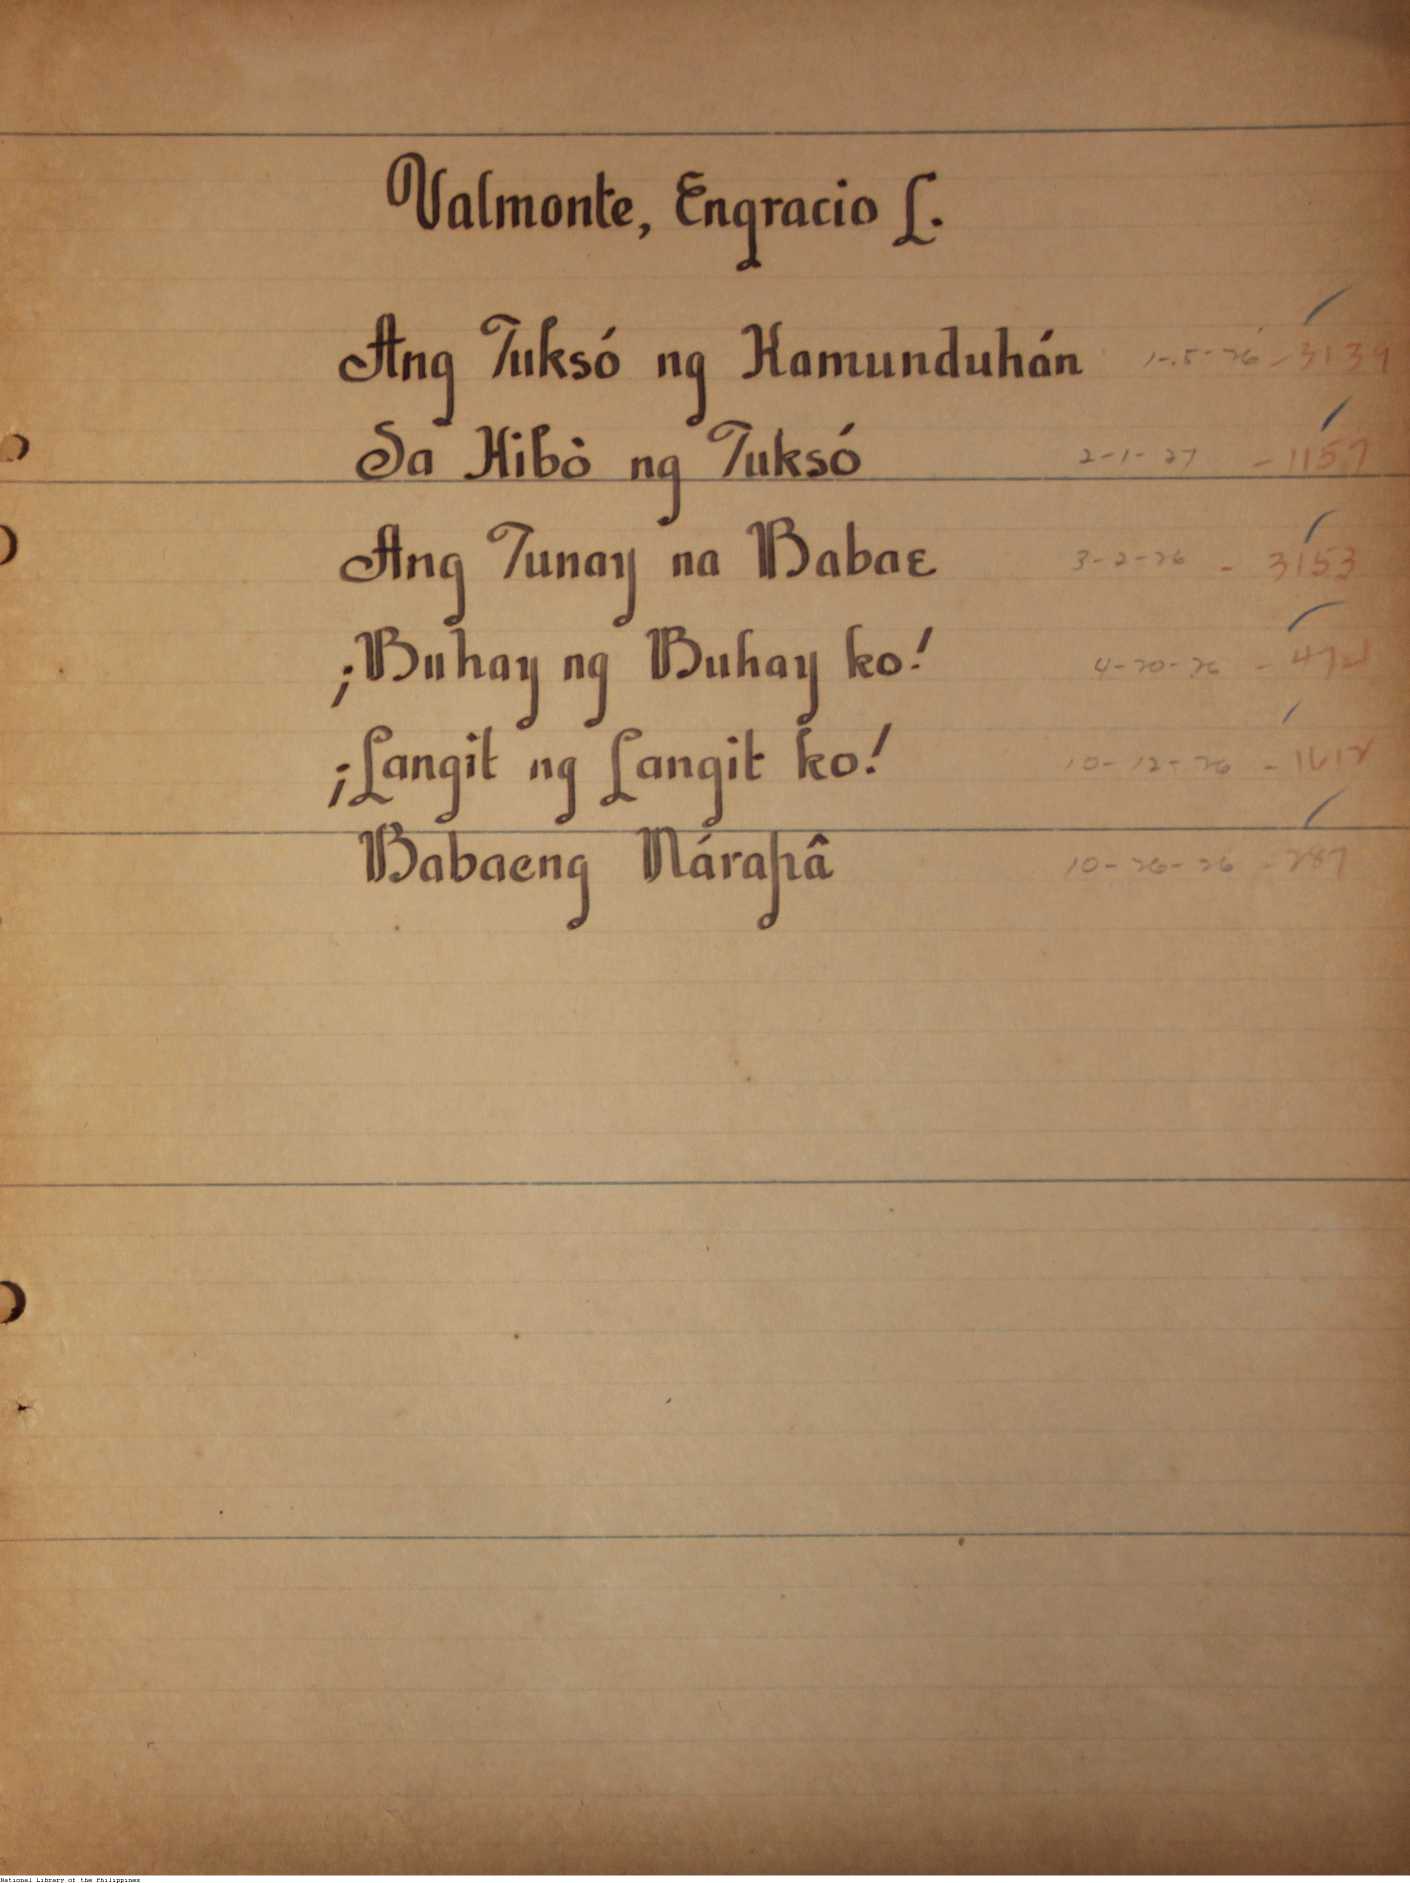 Valmonte, Engracio L.
Ang Tuksó ng Kamunduhán 1-5-26 - 3139
Sa Hibò ng Tuksó 2-1-27 - 1157
Ang Tunay na Babae 3-2-26 - 3153
¡Buhay ng Buhay ko! 4-20-26 -
¡Langit ng Langit ko! 10-12-26 -
Babaeng Márapâ 10-26-26 - 287
National Library of the Philippines